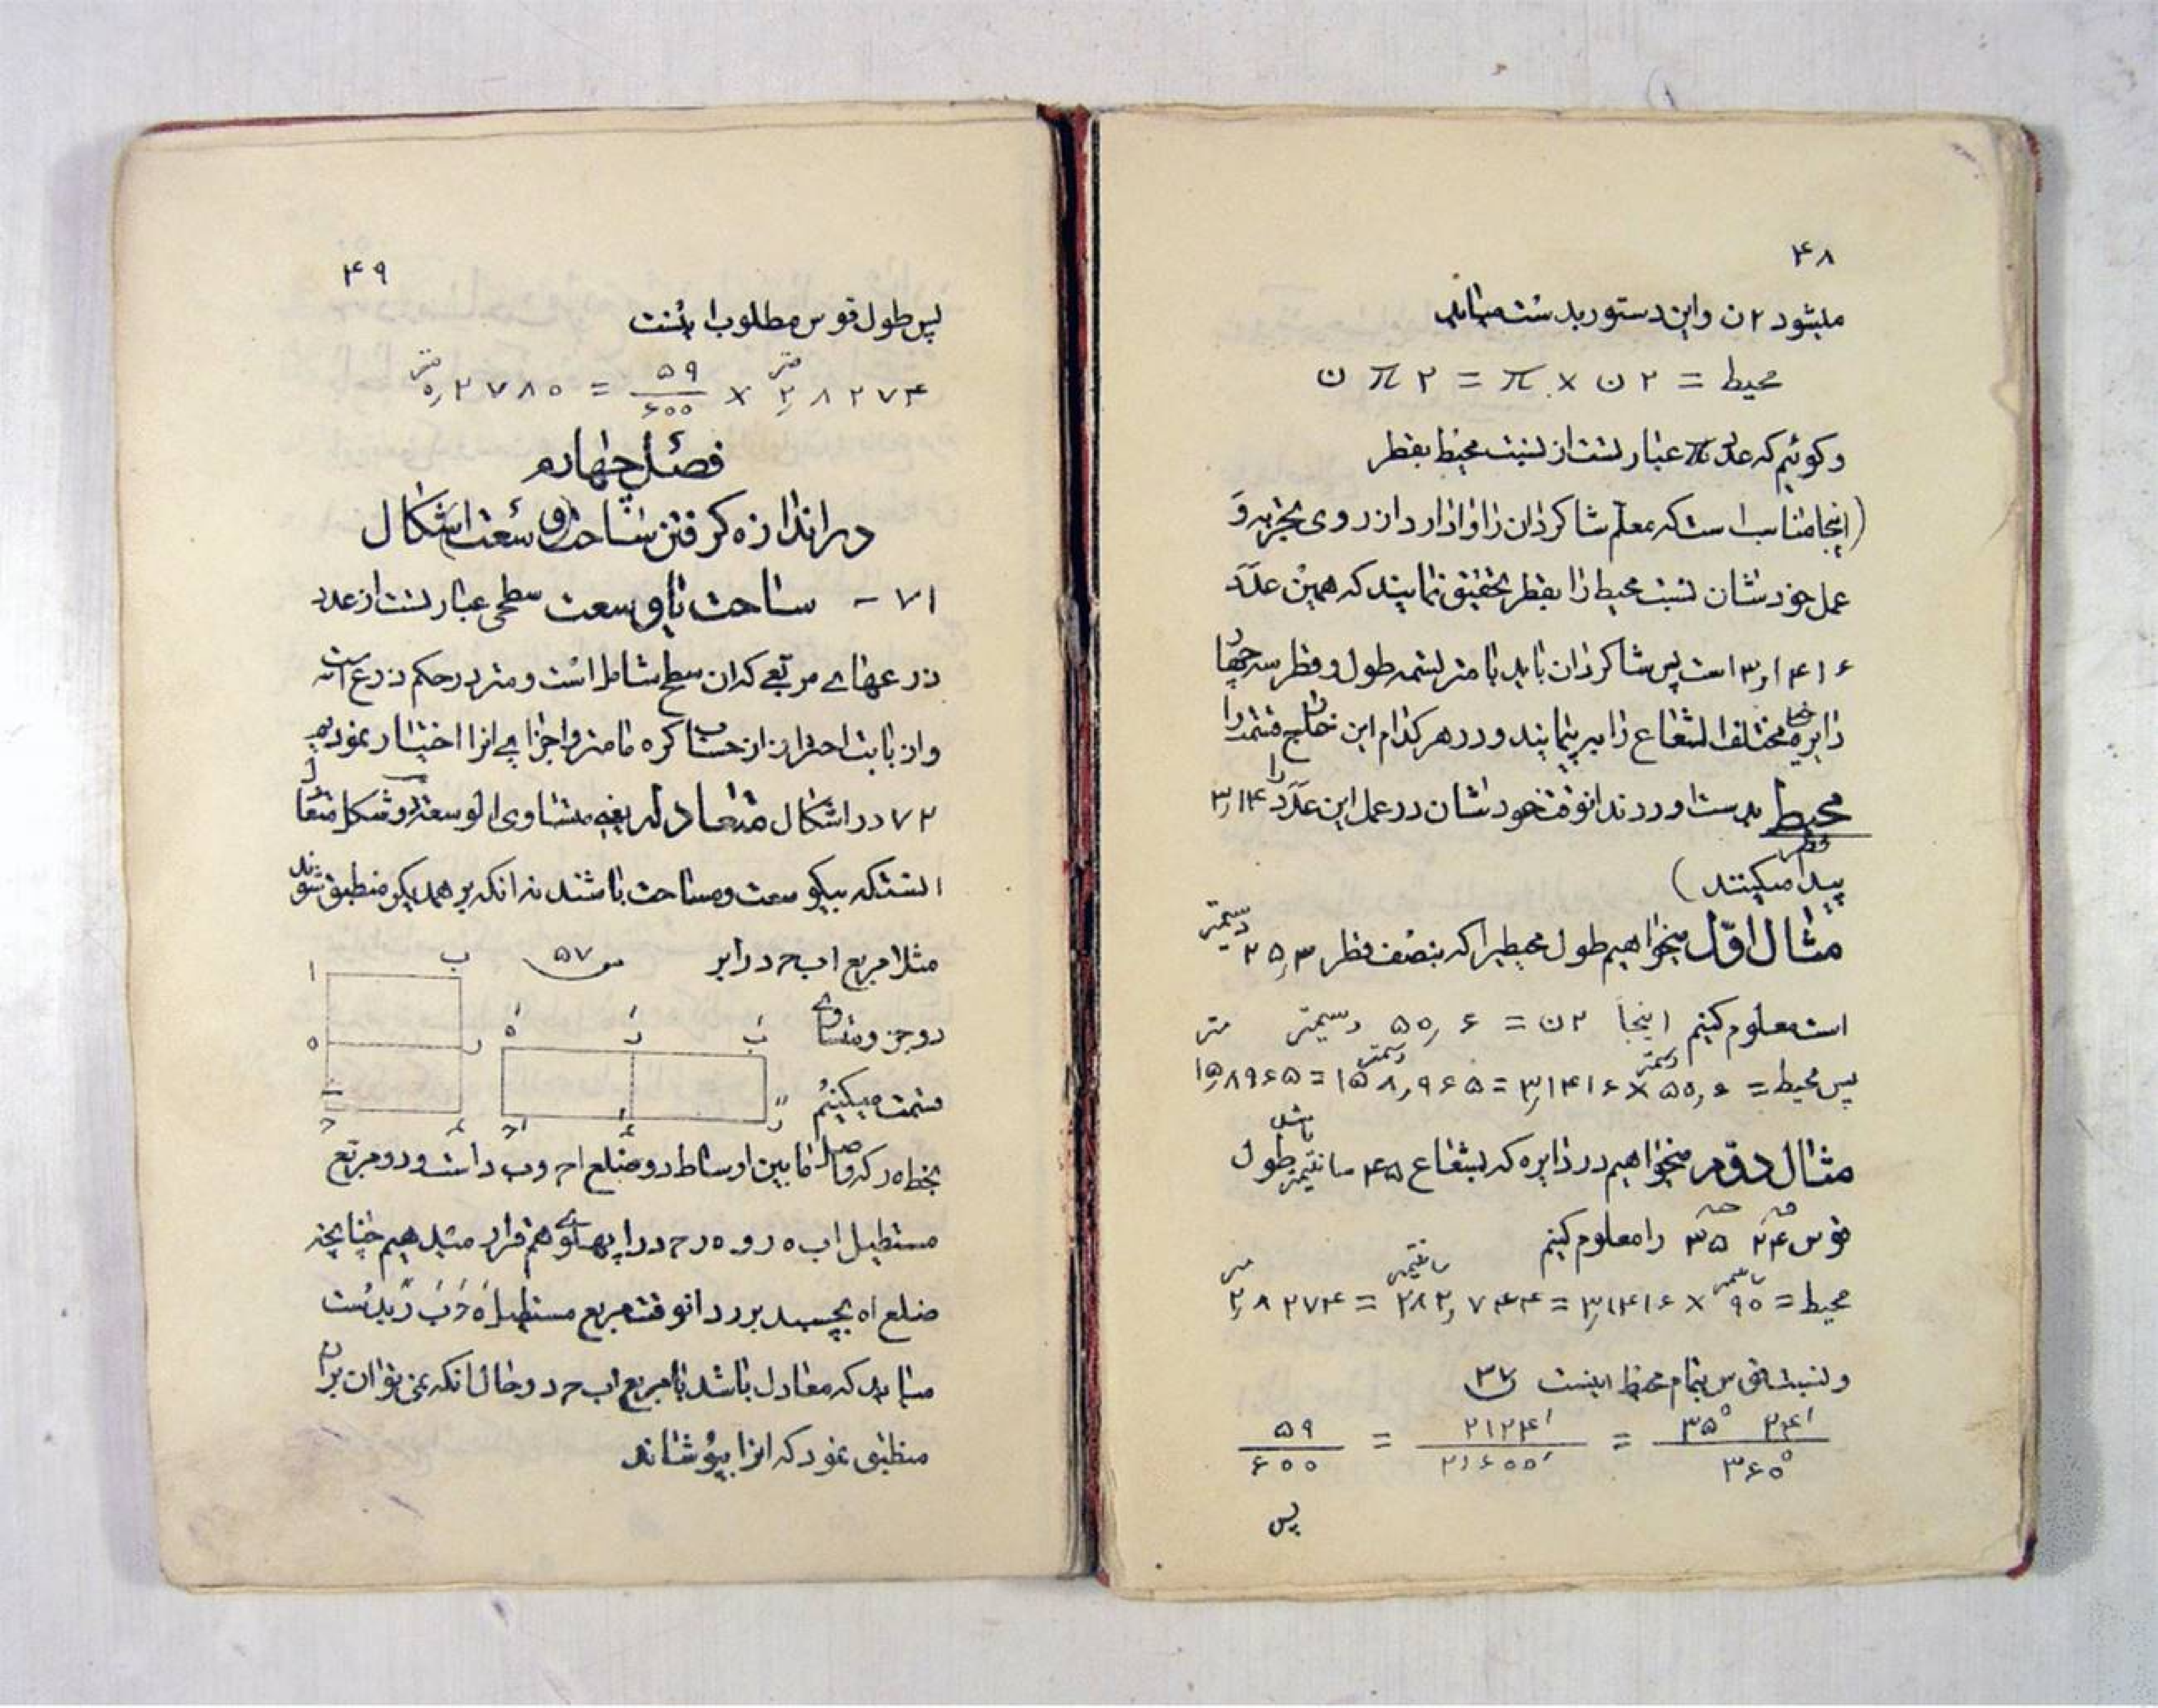 ۴۸
میشود ۲ ن و این دستور بدست میاید
محیط = ۲ ن × π = ۲ π ن
و کوئیم که عدد π عبارتست از نسبت محیط بقطر
(اینجا مناسب است که معلم شاکردان را وادارد از روی تجزیه و
عمل خودشان نسبت محیط را بقطر تحقیق نمایند که همین عدد
۳٫۱۴۱۶ است پس شاکردان باید با متر تسمه طول و قطر سه چهار
دایره مختلف الشعاع را بپیمایند و در هر کدام این خارج قسمت را
محیط
قطر
بدست اورند انوقت خودشان در عمل این عدد ۳٫۱۴ را
پیدا میکنند)
مثال اوّل میخواهیم طول محیطیرا که بنصف قطر ۲۵٫۳ دسیمتر
است معلوم کنیم اینجا ۲ن = ۵۰٫۶ دسیمتر متر
پس محیط = ۵۰٫۶ × ۳٫۱۴۱۶ = ۱۵۸٫۹۶۵ = ۱۵٫۸۹۶۵
مثال دوّم میخواهیم در دایره که بشعاع ۴۵ سانتیمتر باشد طول
قوس ۲۴ ۳۵ را معلوم کنیم
محیط = ۹۰ سانتیمتر × ۳٫۱۴۱۶ = ۲۸۲٫۷۴۴ سانتیمتر = ۲٫۸۲۷۴ متر
و نسبت قوس بتمام محیط اینست
۳۵° ۲۴' / ۳۶۰° = ۲۱۲۴' / ۲۱۶۰۰' = ۵۹ / ۶۰۰
پس
۴۹
پس طول قوس مطلوب اینست
۲٫۸۲۷۴ متر × ۵۹ / ۶۰۰ = ۰٫۲۷۸۵ متر
فصل چهارم
در اندازه کرفتن مساحت و سعت اشکال
۷۱ - مساحت یا وسعت سطحی عبارتست از عدد
ذرعهای مربعی که ان سطح شامل است و متر در حکم ذرع است
و از بابت احتراز از حساب کره ما متر و اجزای انرا اختیار نمودیم
۷۲ در اشکال متعادله یعنی متساوی الوسعة دو شکل متعادل
انست که بیک وسعت و مساحت باشند نه انکه بر همدیکر منطبق شوند
مثلا مربع اب ح د را بر ش ۵۷
دو جزو متساوی
قسمت میکنیم
ا ب ه ر ح د
بخط ه ر که واصل مابین اوساط دو ضلع اح و ب د است و دو مربع
مستطیل اب ه ر و ه ر ح د را پهلوی هم قرار میدهیم چنانچه
ضلع اه بچسبد بر رد انوقت مربع مستطیل بدست
میاید که معادل باشد با مربع اب ح د و حال انکه نمی توان بران
منطبق نمود که انرا بپوشاند